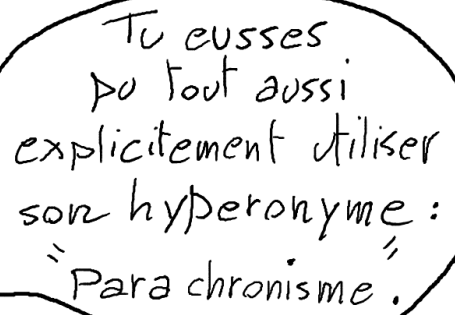 Tu eusses
pu tout aussi
explicitement utiliser
son hyperonyme :
"Parachronisme".